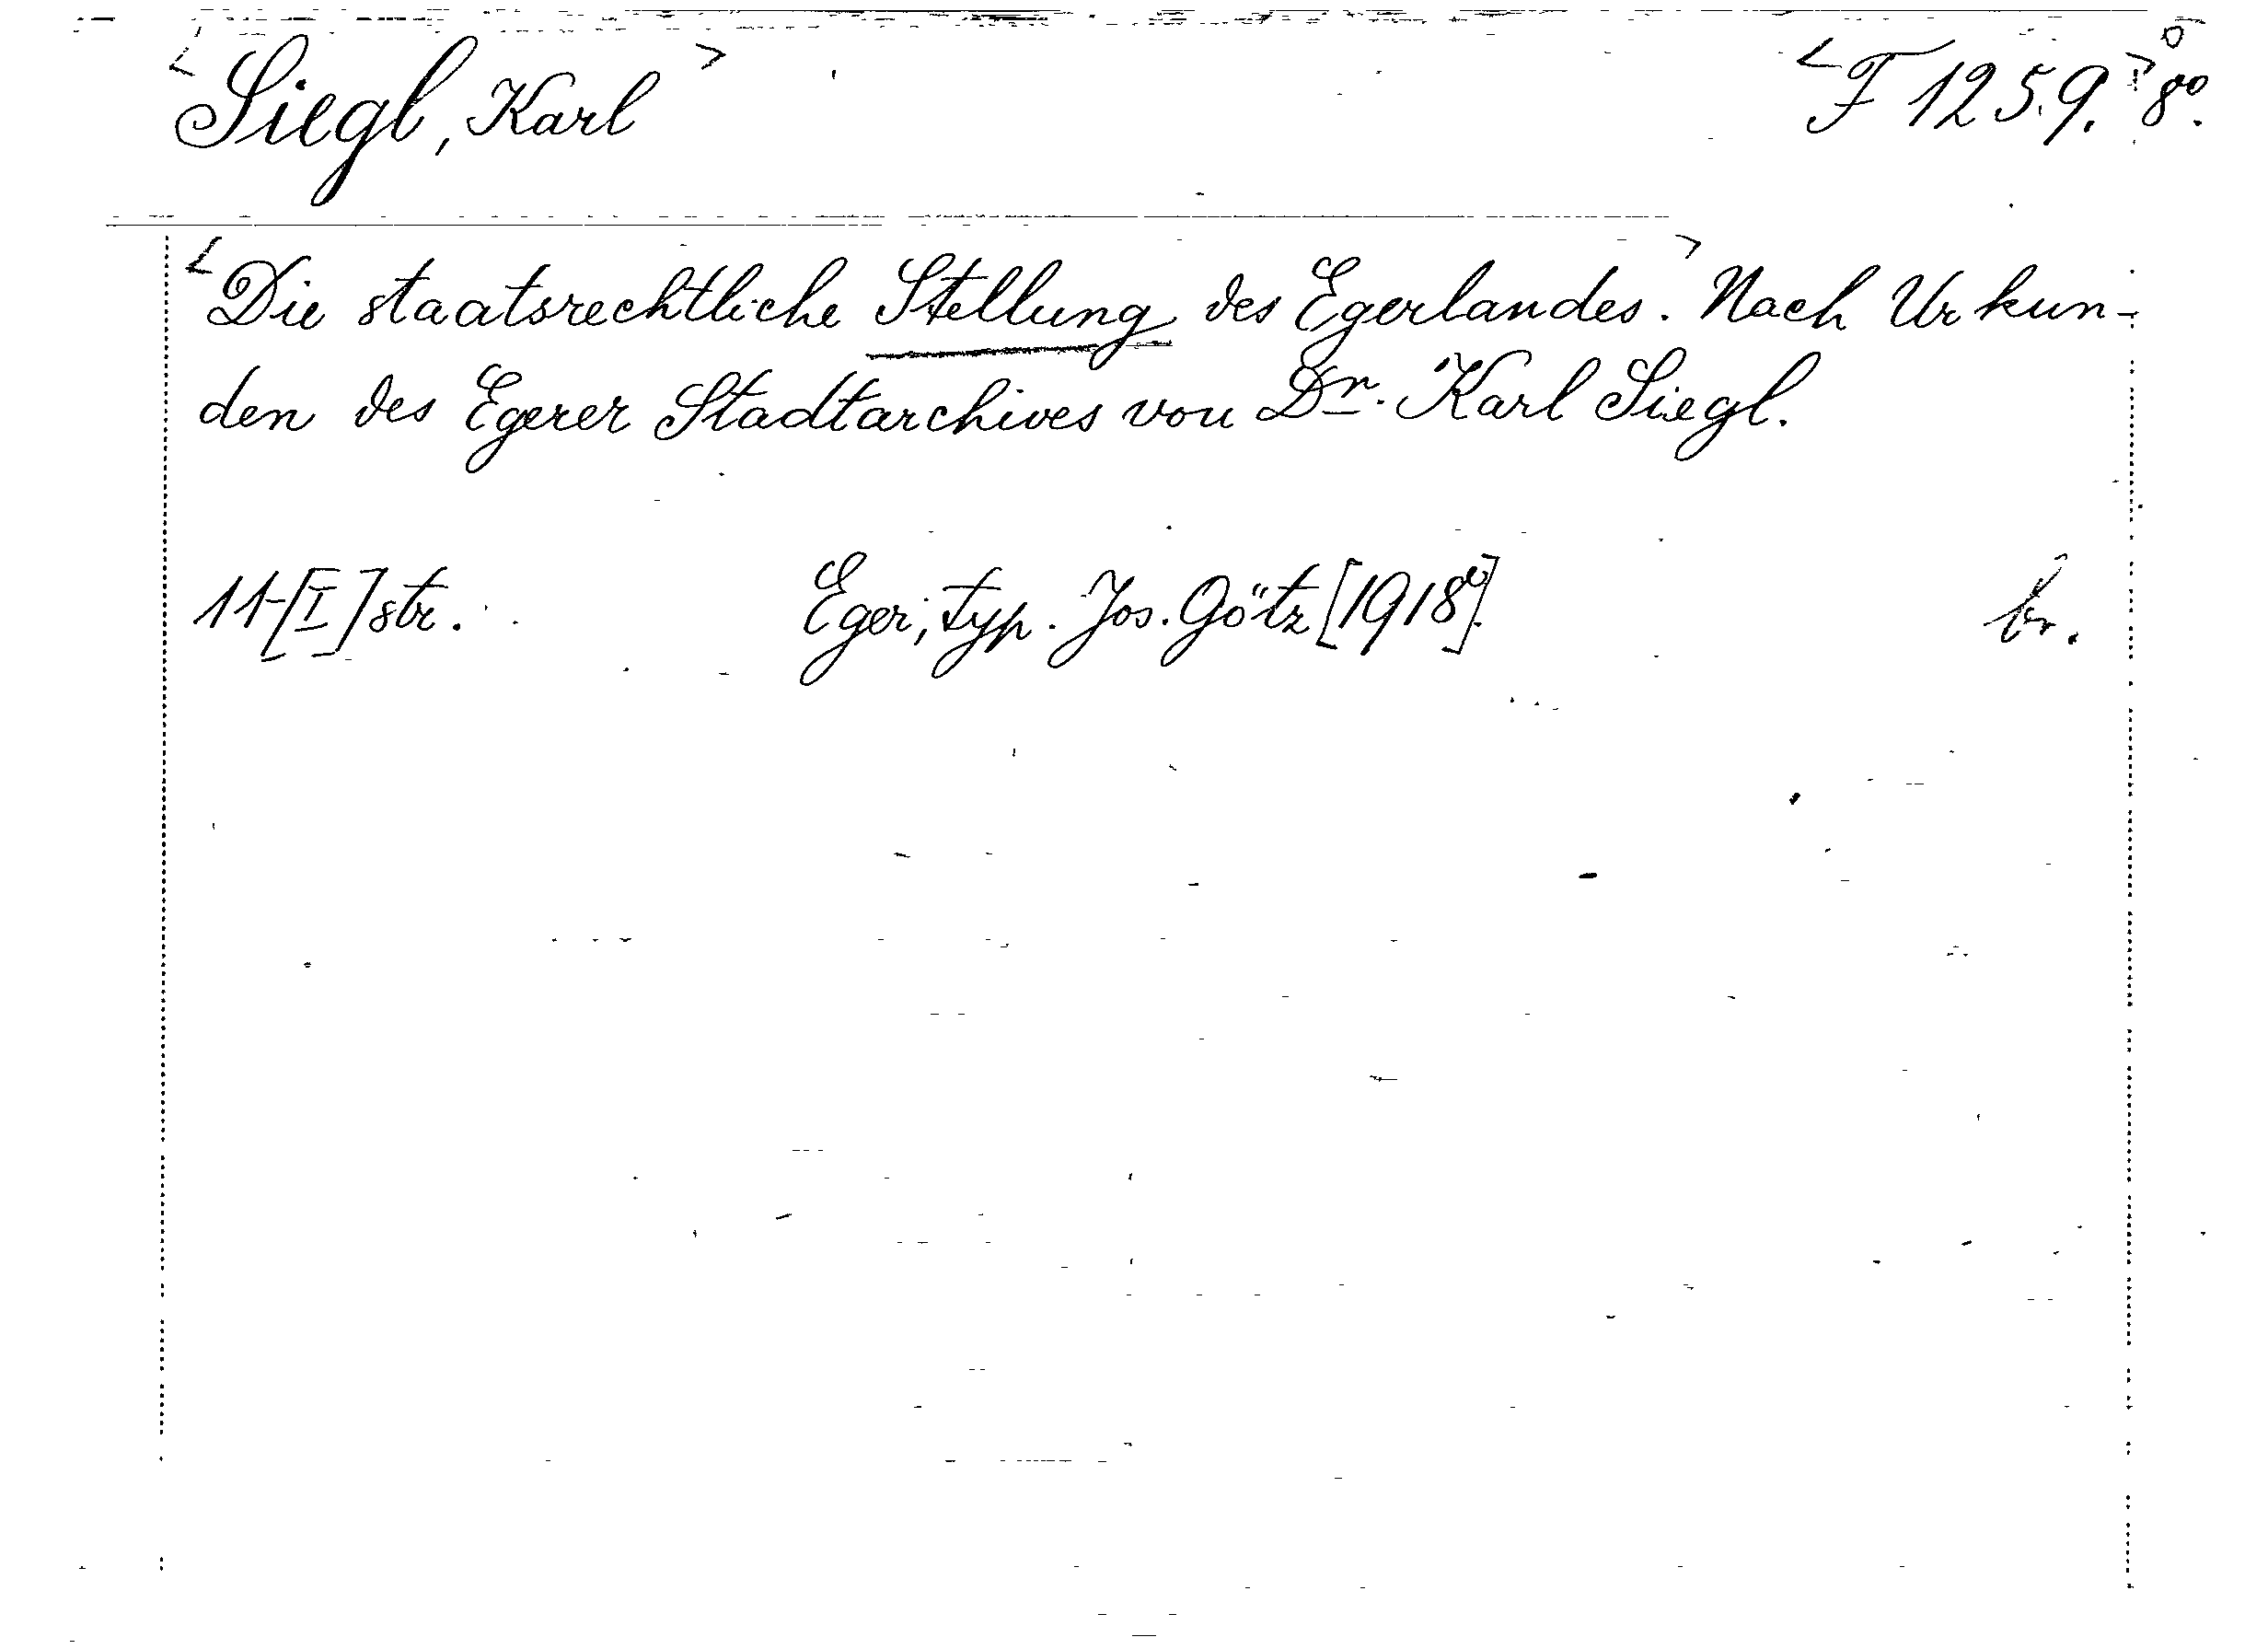 <Siegl, Karl> <F 1259.> 8°.
<Die staatsrechtliche Stellung des Egerlandes.> Nach Urkun-
den des Egerer Stadtarchives von Dr. Karl Siegl.
11-[I] str. Eger, typ. Jos. Götz [1918]. br.